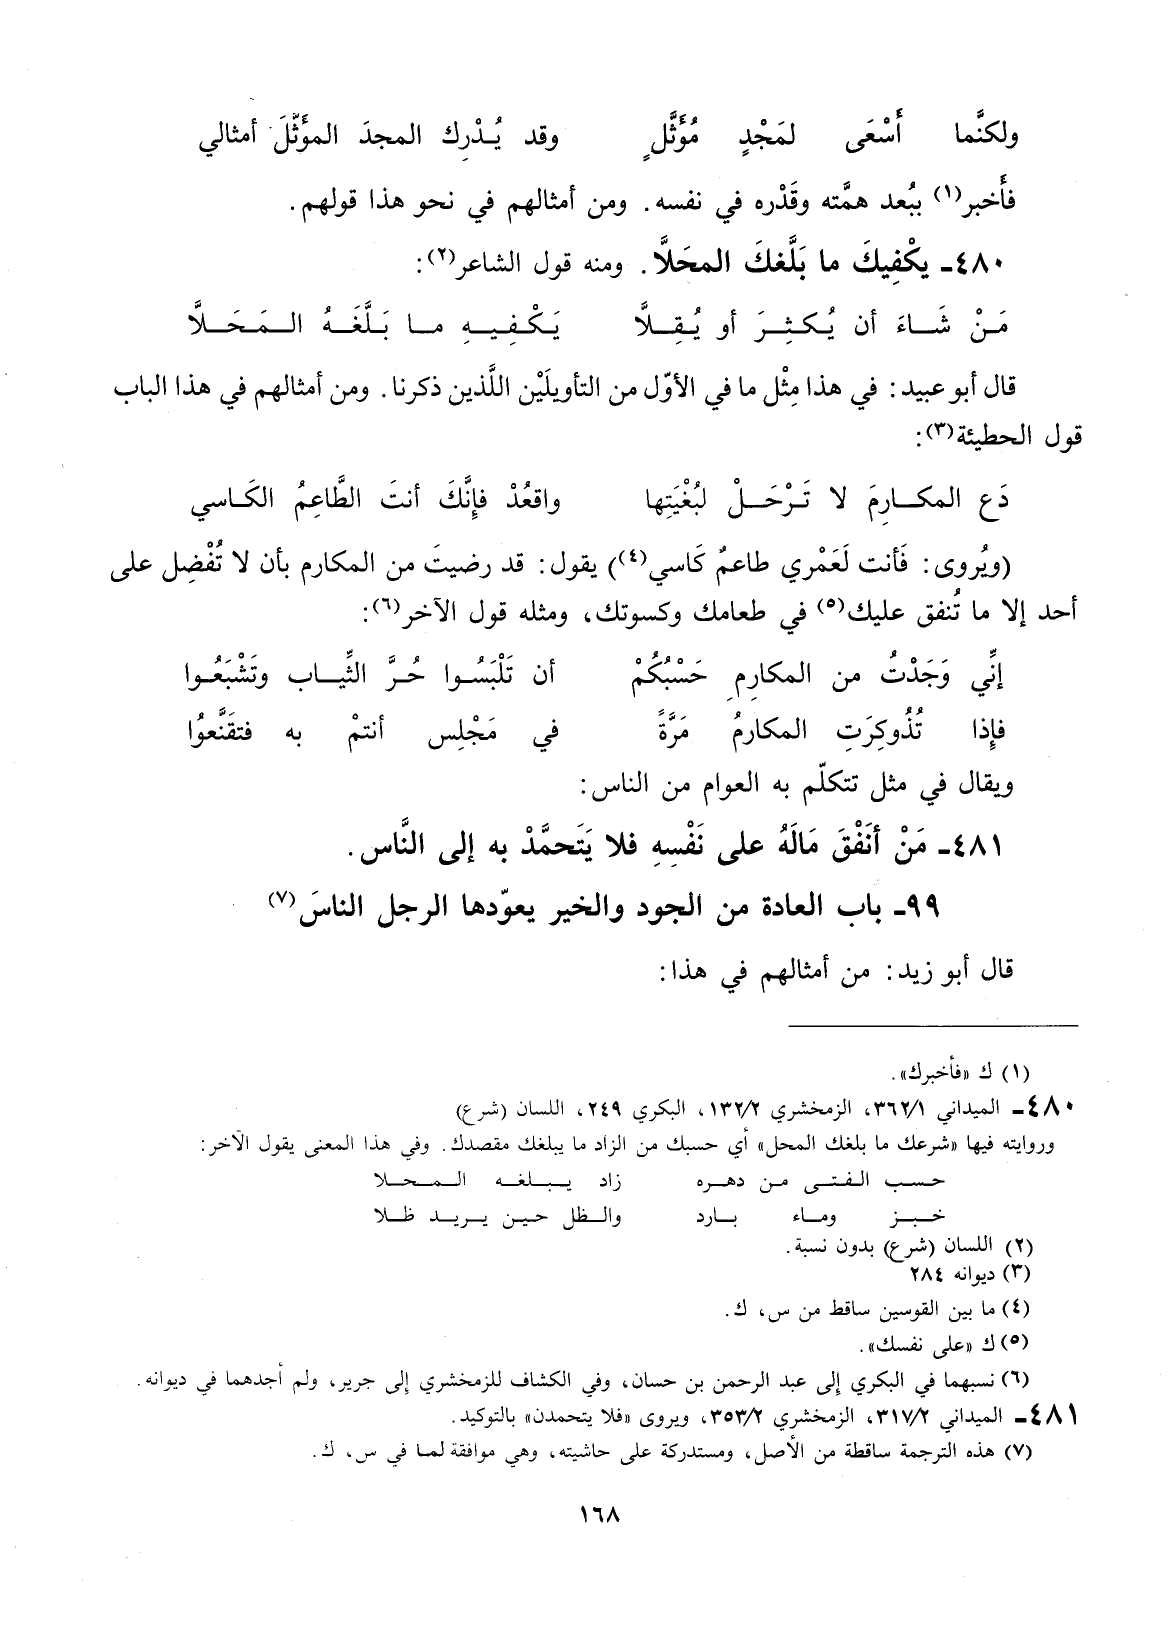 ولكنَّما أَسْعَى لمَجْدٍ مُؤَثَّلٍ وقد يُدْرِك المجدَ المؤَثَّلَ أمثالي
فأَخبر(١) ببُعد همَّته وقَدْره في نفسه. ومن أمثالهم في نحو هذا قولهم.
٤٨٠ـ يكْفِيكَ ما بَلَّغكَ المحَلاَّ. ومنه قول الشاعر(٢):
مَـنْ شَـاءَ أن يُـكـثِـرَ أو يُـقِـلاَّ يَـكْـفِـيـهِ مـا بَـلَّـغَـهُ الـمَـحَـلاَّ
قال أبو عبيد: في هذا مِثْل ما في الأوّل من التأويلَيْن اللَّذين ذكرنا. ومن أمثالهم في هذا الباب
قول الحطيئة(٣):
دَعِ المكـارِمَ لا تَـرْحَـلْ لبُغْيَتِها واقعُدْ فإِنَّكَ أنتَ الطَّاعِمُ الكَـاسي
(ويُروى: فَأنت لَعَمْري طاعمٌ كَاسي(٤)) يقول: قد رضيتَ من المكارم بأن لا تُفْضِل على
أحد إلا ما تُنفق عليك(٥) في طعامك وكسوتك، ومثله قول الآخر(٦):
إنِّي وَجَدْتُ من المكارِمِ حَسْبُكُمْ أن تَلْبَسُـوا حُـرَّ الثِّيـاب وتَشْبَعُـوا
فإِذا تُذُوكِرَتِ المكارمُ مَرَّةً في مَجْلِس أنتمْ به فتقَنَّعوُا
ويقال في مثل تتكلّم به العوام من الناس:
٤٨١ـ مَنْ أنَفْقَ مَالَهُ على نَفْسِهِ فلا يَتَحمَّدْ به إلى النَّاس.
٩٩ـ باب العادة من الجود والخير يعوّدها الرجل الناسَ(٧)
قال أبو زيد: من أمثالهم في هذا:
(١) ك «فأخبرك».
٤٨٠ـ الميداني ٣٦٢/١، الزمخشري ١٣٢/٢، البكري ٢٤٩، اللسان (شرع)
وروايته فيها «شرعك ما بلغك المحل» أي حسبك من الزاد ما يبلغك مقصدك. وفي هذا المعنى يقول الآخر:
حـسـب الـفـتـى مـن دهـره زاد يـبـلـغـه الـمـحـلا
خـبـز ومـاء بـارد والـظل حـيـن يـريـد ظـلا
(٢) اللسان (شرع) بدون نسبة.
(٣) ديوانه ٢٨٤
(٤) ما بين القوسين ساقط من س، ك.
(٥) ك «على نفسك».
(٦) نسبهما في البكري إلى عبد الرحمن بن حسان، وفي الكشاف للزمخشري إلى جرير، ولم أجدهما في ديوانه.
٤٨١ـ الميداني ٣١٧/٢، الزمخشري ٣٥٣/٢، ويروى «فلا يتحمدن» بالتوكيد.
(٧) هذه الترجمة ساقطة من الأصل، ومستدركة على حاشيته، وهي موافقة لما في س، ك.
١٦٨